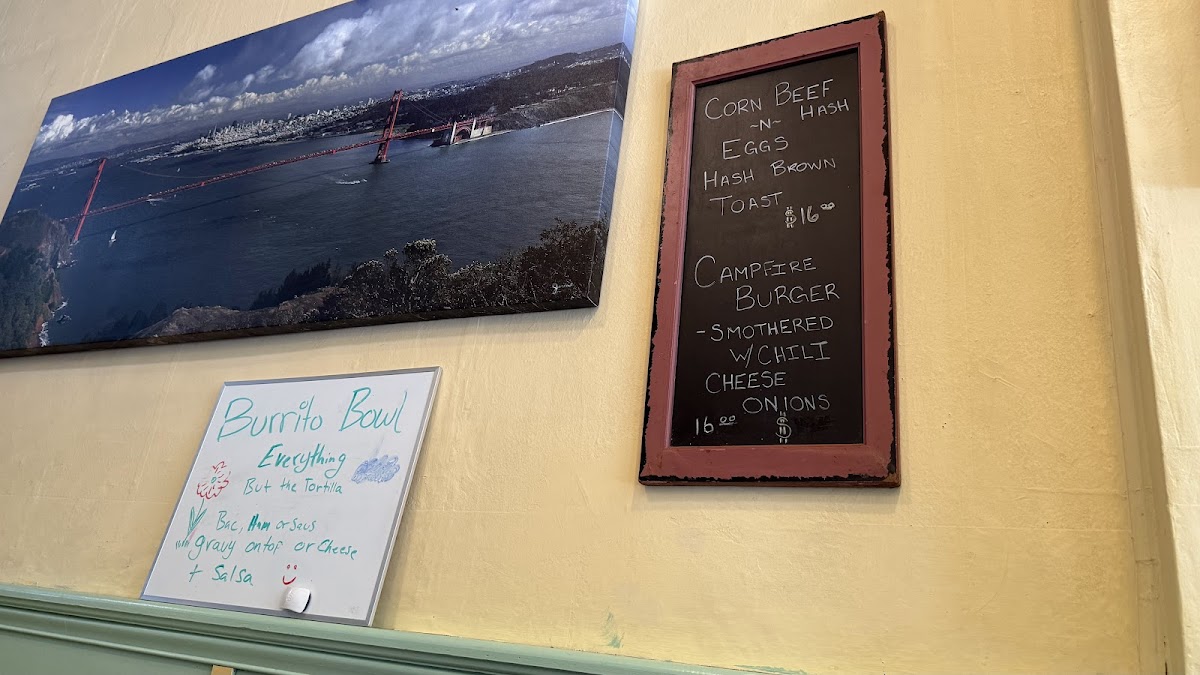 Burrito Bowl
Everything
But the Tortilla
Bac, Ham or Saus
gravy on top or Cheese
+ Salsa
CORN BEEF
~N~ HASH
EGGS
HASH BROWN
TOAST
$16.00
CAMPFIRE
BURGER
-SMOTHERED
W/CHILI
CHEESE
ONIONS
16.00 $